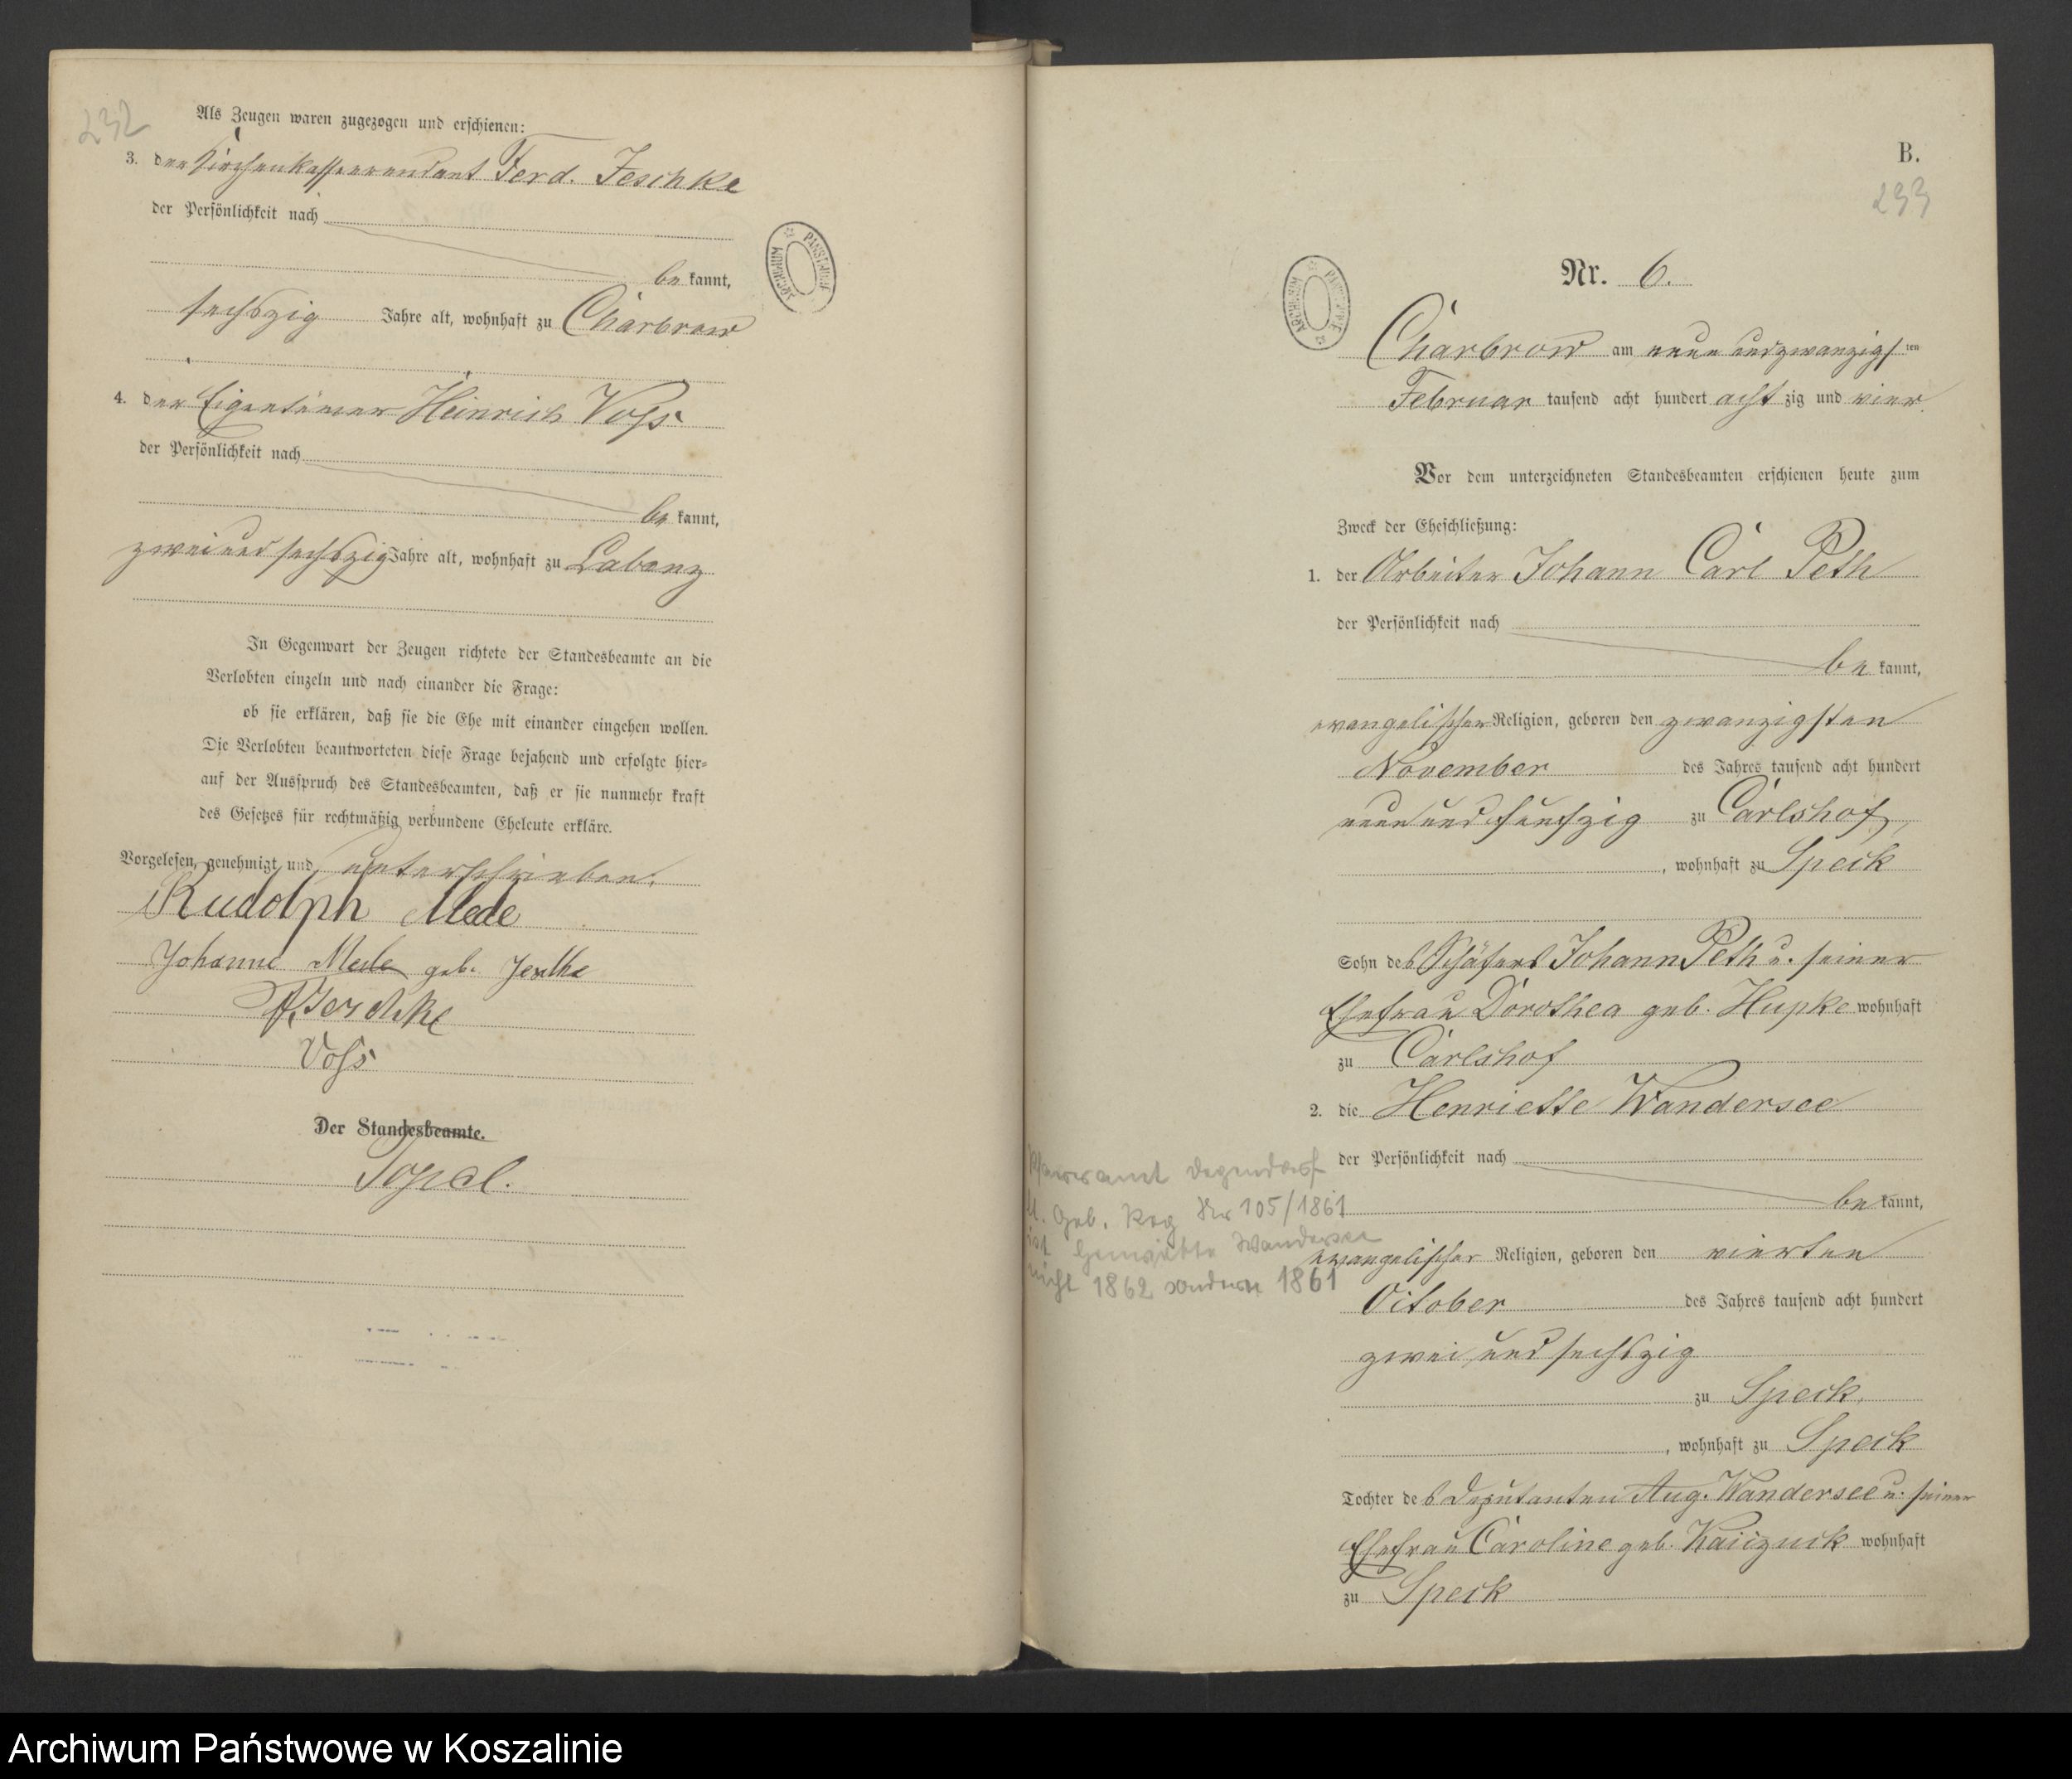 232
Als Zeugen waren zugezogen und erschienen:
3. der Kirchenkassenrendant Ferd. Jeschke
der Persönlichkeit nach
be kannt,
sechszig Jahre alt, wohnhaft zu Charbrow
4. der Eigentümer Heinrich Voss
der Persönlichkeit nach
be kannt,
zwei und sechszig Jahre alt, wohnhaft zu Labenz
In Gegenwart der Zeugen richtete der Standesbeamte an die
Verlobten einzeln und nach einander die Frage:
ob sie erklären, daß sie die Ehe mit einander eingehen wollen.
Die Verlobten beantworteten diese Frage bejahend und erfolgte hier-
auf der Ausspruch des Standesbeamten, daß er sie nunmehr kraft
des Gesetzes für rechtmäßig verbundene Eheleute erkläre.
Vorgelesen, genehmigt und unterschrieben.
Rudolph Mede
Johanne Mede geb.
F. Jeschke
Voss
Der Standesbeamte.
B.
233
Nr. 6.
Charbrow am neun und zwanzigsten
Februar tausend acht hundert acht zig und vier
Vor dem unterzeichneten Standesbeamten erschienen heute zum
Zweck der Eheschließung:
1. der Arbeiter Johann Carl Peth
der Persönlichkeit nach
be kannt,
evangelischer Religion, geboren den zwanzigsten
November des Jahres tausend acht hundert
neun und funfzig zu Carlshof,
, wohnhaft zu Speck
Sohn des Schäfers Johann Peth u. seiner
Ehefrau Dorothea geb. Hupke wohnhaft
zu Carlshof
2. die Henriette Wandersee
der Persönlichkeit nach
be kannt,
evangelischer Religion, geboren den vierten
October des Jahres tausend acht hundert
zwei und sechszig
zu Speck,
, wohnhaft zu Speck
Tochter des Deputanten Aug. Wandersee u. seiner
Ehefrau Caroline geb. wohnhaft
zu Speck
Pfarramt Degendorf
lt. Geb. Reg Nr 105/1861
ist Henriette Wandersee
nicht 1862 sondern 1861
Archiwum Państwowe w Koszalinie